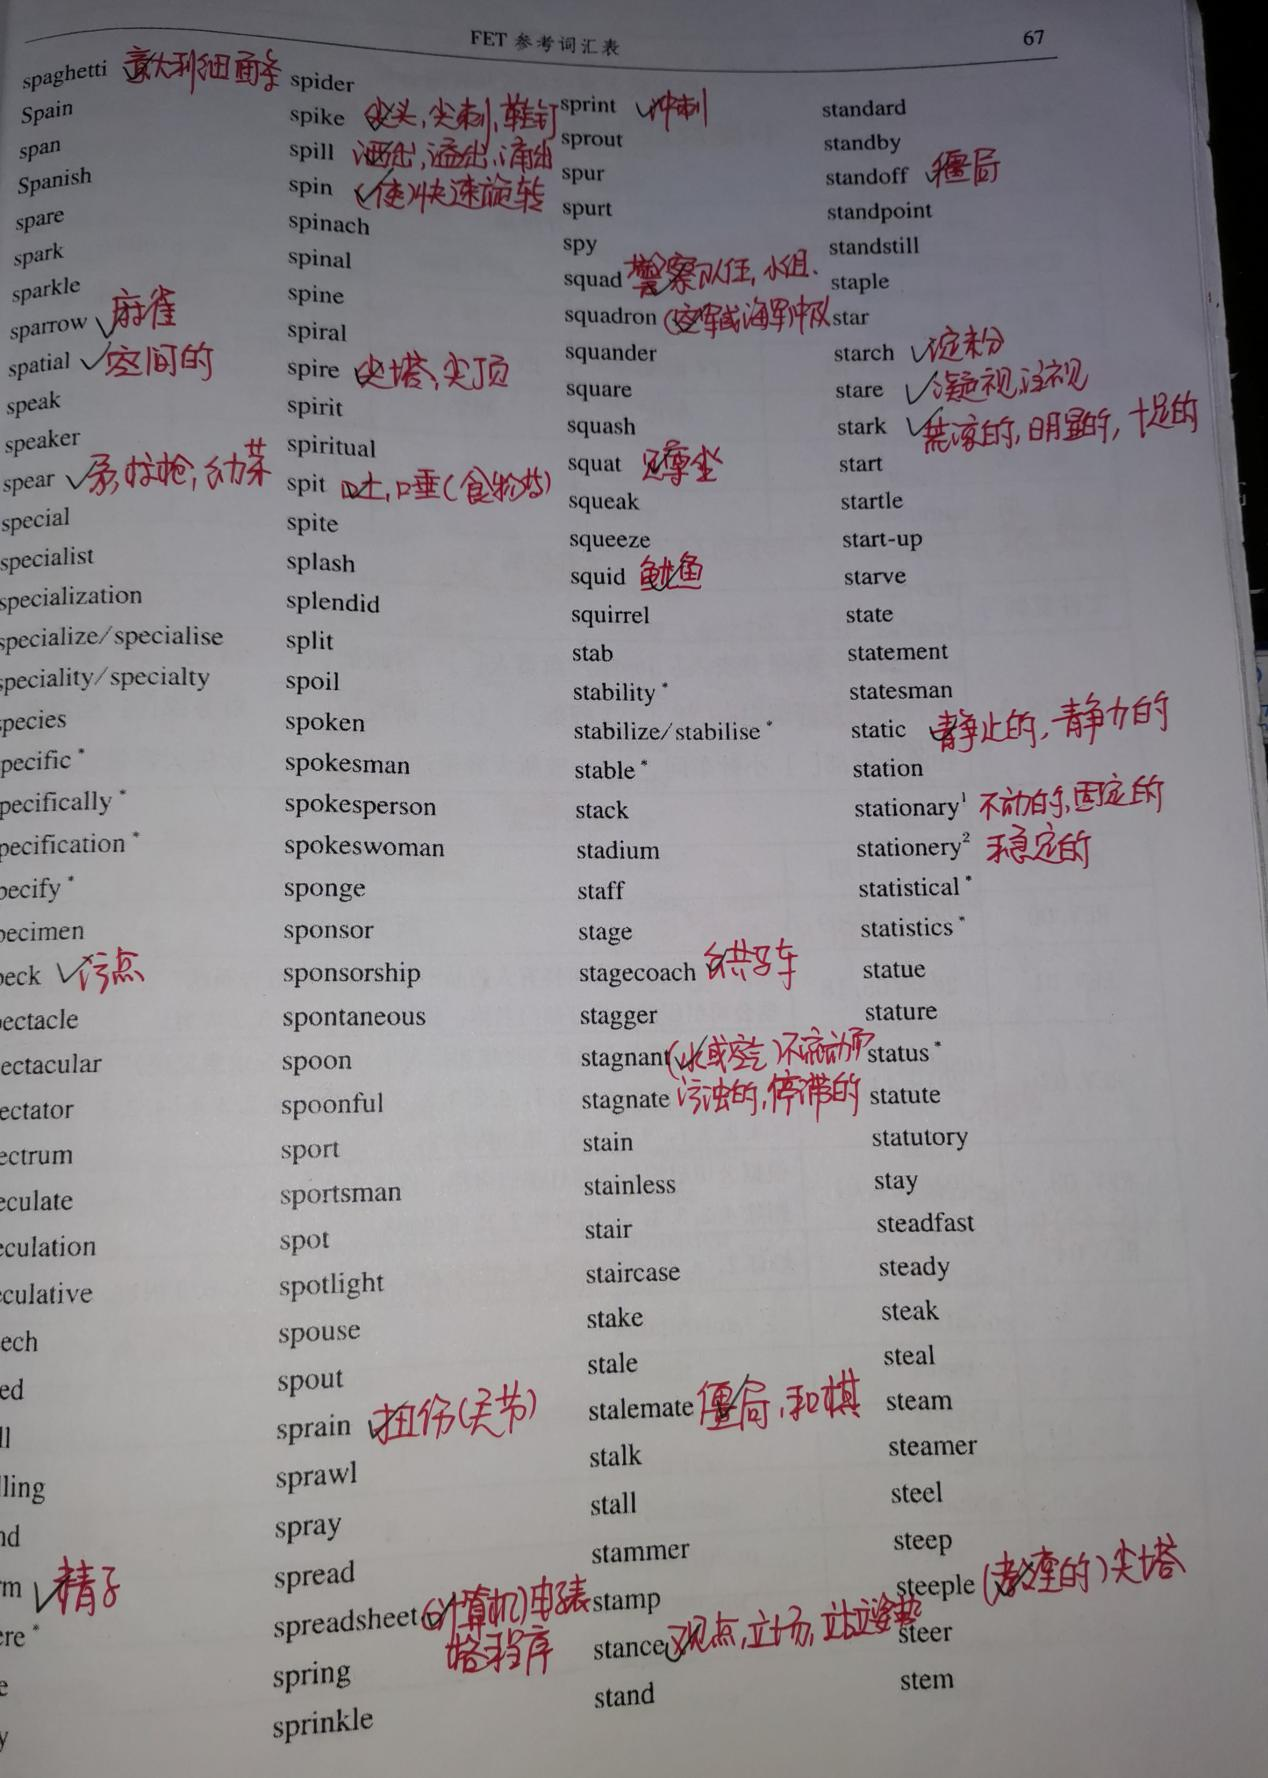 FET 参考词汇表 67
spaghetti 意大利细面条
Spain
span
Spanish
spare
spark
sparkle
sparrow 麻雀
spatial 空间的
speak
speaker
spear 矛,标枪,幼芽
special
specialist
specialization
specialize/specialise
speciality/specialty
pecies
pecific *
pecifically *
pecification *
pecify *
pecimen
peck 污点
pectacle
ectacular
ectator
ectrum
eculate
eculation
culative
ech
ed
ll
lling
nd
rm 精子
ere *
e
y
spider
spike 尖头,尖刺,鞋钉
spill 洒出,溢出,涌出
spin (使)快速旋转
spinach
spinal
spine
spiral
spire 尖塔,尖顶
spirit
spiritual
spit 吐,唾(食物等)
spite
splash
splendid
split
spoil
spoken
spokesman
spokesperson
spokeswoman
sponge
sponsor
sponsorship
spontaneous
spoon
spoonful
sport
sportsman
spot
spotlight
spouse
spout
sprain 扭伤(关节)
sprawl
spray
spread
spreadsheet (计算机)电子表
格程序
spring
sprinkle
sprint 冲刺
sprout
spur
spurt
spy
squad 警察队伍,小组.
squadron (空军或海军)中队
squander
square
squash
squat 蹲坐
squeak
squeeze
squid 鱿鱼
squirrel
stab
stability *
stabilize/stabilise *
stable *
stack
stadium
staff
stage
stagecoach 公共马车
stagger
stagnant (水或空气)不流动而
stagnate 污浊的,停滞的
stain
stainless
stair
staircase
stake
stale
stalemate 僵局,和棋
stalk
stall
stammer
stamp
stance 观点,立场,站立姿势
stand
standard
standby
standoff 僵局
standpoint
standstill
staple
star
starch 淀粉
stare 凝视,注视
stark 荒凉的,明显的,十足的
start
startle
start-up
starve
state
statement
statesman
static 静止的,静力的
station
stationary¹ 不动的,固定的
stationery² 稳定的
statistical *
statistics *
statue
stature
status *
statute
statutory
stay
steadfast
steady
steak
steal
steam
steamer
steel
steep
steeple (教堂的)尖塔
steer
stem